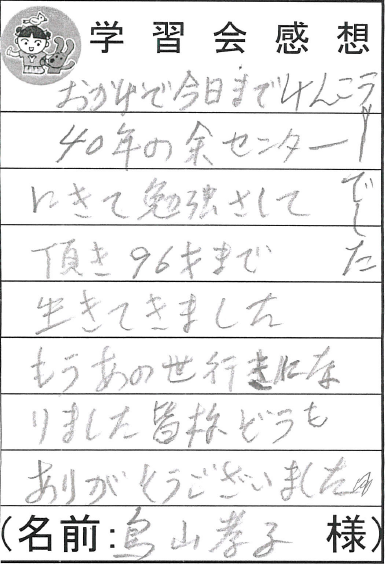 学習会感想
おかげで今日までけんこう
でした
40年の余センター
にきて勉強さして
頂き96才まで
生きてきました
もうあの世行きにな
りました皆様どうも
ありがとうございました
(名前:鳥山孝子 様)